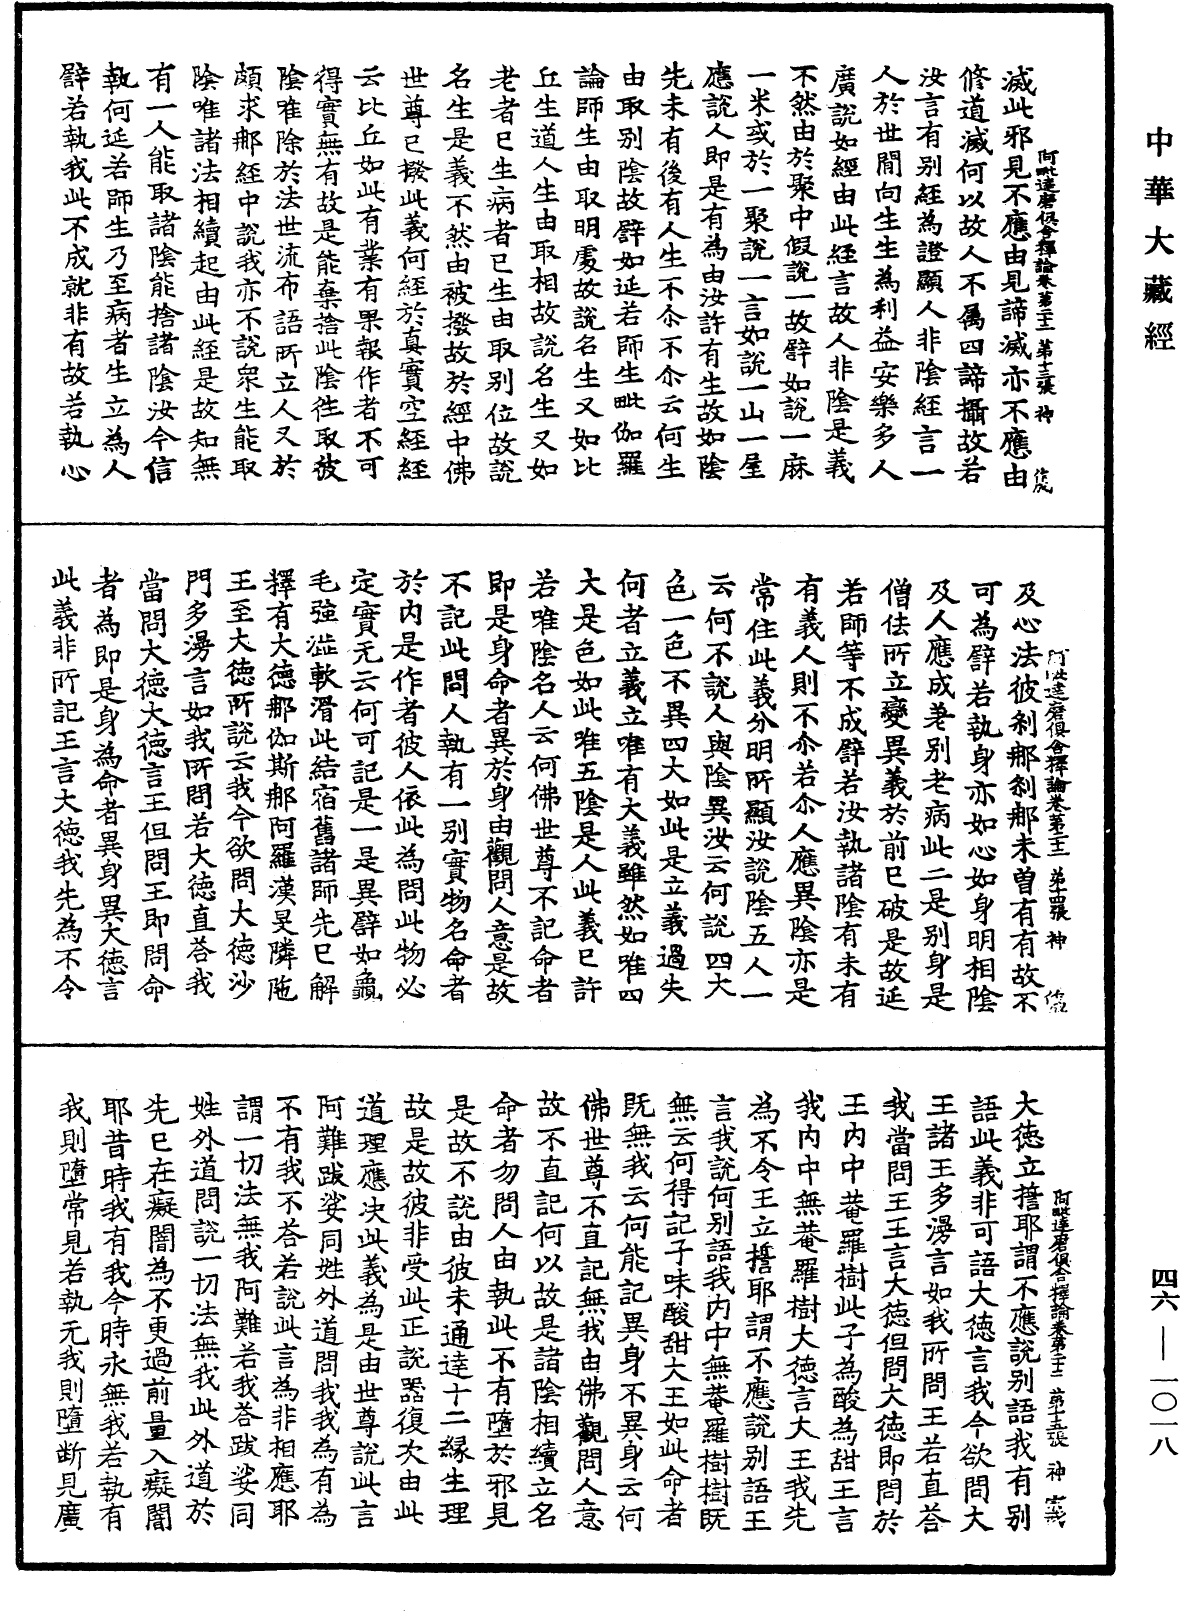 中華大藏經
阿毗達磨俱舍釋論卷第二十二 第十三張 神
滅此邪見不應由見諦滅亦不應由
修道滅何以故人不屬四諦攝故若
汝言有別經為證顯人非陰經言一
人於世間向生生為利益安樂多人
廣說如經由此經言故人非陰是義
不然由於聚中假說一故譬如說一麻
一米或於一聚說一言如說一山一屋
應說人即是有為由汝許有生故如陰
先未有後有人生不尒不尒云何生
由取別陰故譬如延若師生毗伽羅
論師生由取明處故說名生又如比
丘生道人生由取相故說名生又如
老者已生病者已生由取別位故說
名生是義不然由被撥故於經中佛
世尊已撥此義何經於真實空經經
云比丘如此有業有果報作者不可
得實無有故是能棄捨此陰徃取彼
陰唯除於法世流布語所立人又於
頗求那經中說我亦不說衆生能取
陰唯諸法相續起由此經是故知無
有一人能取諸陰能捨諸陰汝今信
執何延若師生乃至病者生立為人
譬若執我此不成就非有故若執心
阿毗達磨俱舍釋論卷第二十二 第十四張 神
及心法彼刹那刹那未曾有有故不
可為譬若執身亦如心如身明相陰
及人應成差別老病此二是別身是
僧佉所立變異義於前已破是故延
若師等不成譬若汝執諸陰有未有
有義人則不尒若尒人應異陰亦是
常住此義分明所顯汝說陰五人一
云何不說人與陰異汝云何說四大
色一色不異四大如此是立義過失
何者立義立唯有大義雖然如唯四
大是色如此唯五陰是人此義已許
若唯陰名人云何佛世尊不記命者
即是身命者異於身由觀問人意是故
不記此問人執有一別實物名命者
於內是作者彼人依此為問此物必
定實无云何可記是一是異譬如龜
毛強澁軟滑此結宿舊諸師先已解
釋有大德那伽斯那阿羅漢旻隣陁
王至大德所說云我今欲問大德沙
門多漫言如我所問若大德直荅我
當問大德大德言王但問王即問命
者為即是身為命者異身異大德言
此義非所記王言大德我先為不令
阿毗達磨俱舍釋論卷第二十二 第十五張 神
大德立誓耶謂不應說別語我有別
語此義非可語大德言我今欲問大
王諸王多漫言如我所問王若直荅
我當問王王言大德但問大德即問於
王內中菴羅樹此子為酸為甜王言
我內中無菴羅樹大德言大王我先
為不令王立誓耶謂不應說別語王
言我說何別語我內中無菴羅樹樹既
無云何得記子味酸甜大王如此命者
既無我云何能記異身不異身云何
佛世尊不直記無我由佛觀問人意
故不直記何以故是諸陰相續立名
命者勿問人由執此不有墮於邪見
是故不說由彼未通達十二緣生理
故是故彼非受此正說器復次由此
道理應决此義為是由世尊說此言
阿難跋娑同姓外道問我我為有為
不有我不荅若說此言為非相應耶
謂一切法無我阿難若我荅跋娑同
姓外道問說一切法無我此外道於
先已在癡闇為不更過前量入癡闇
耶昔時我有我今時永無我若執有
我則墮常見若執无我則墮断見廣
四六—一〇一八